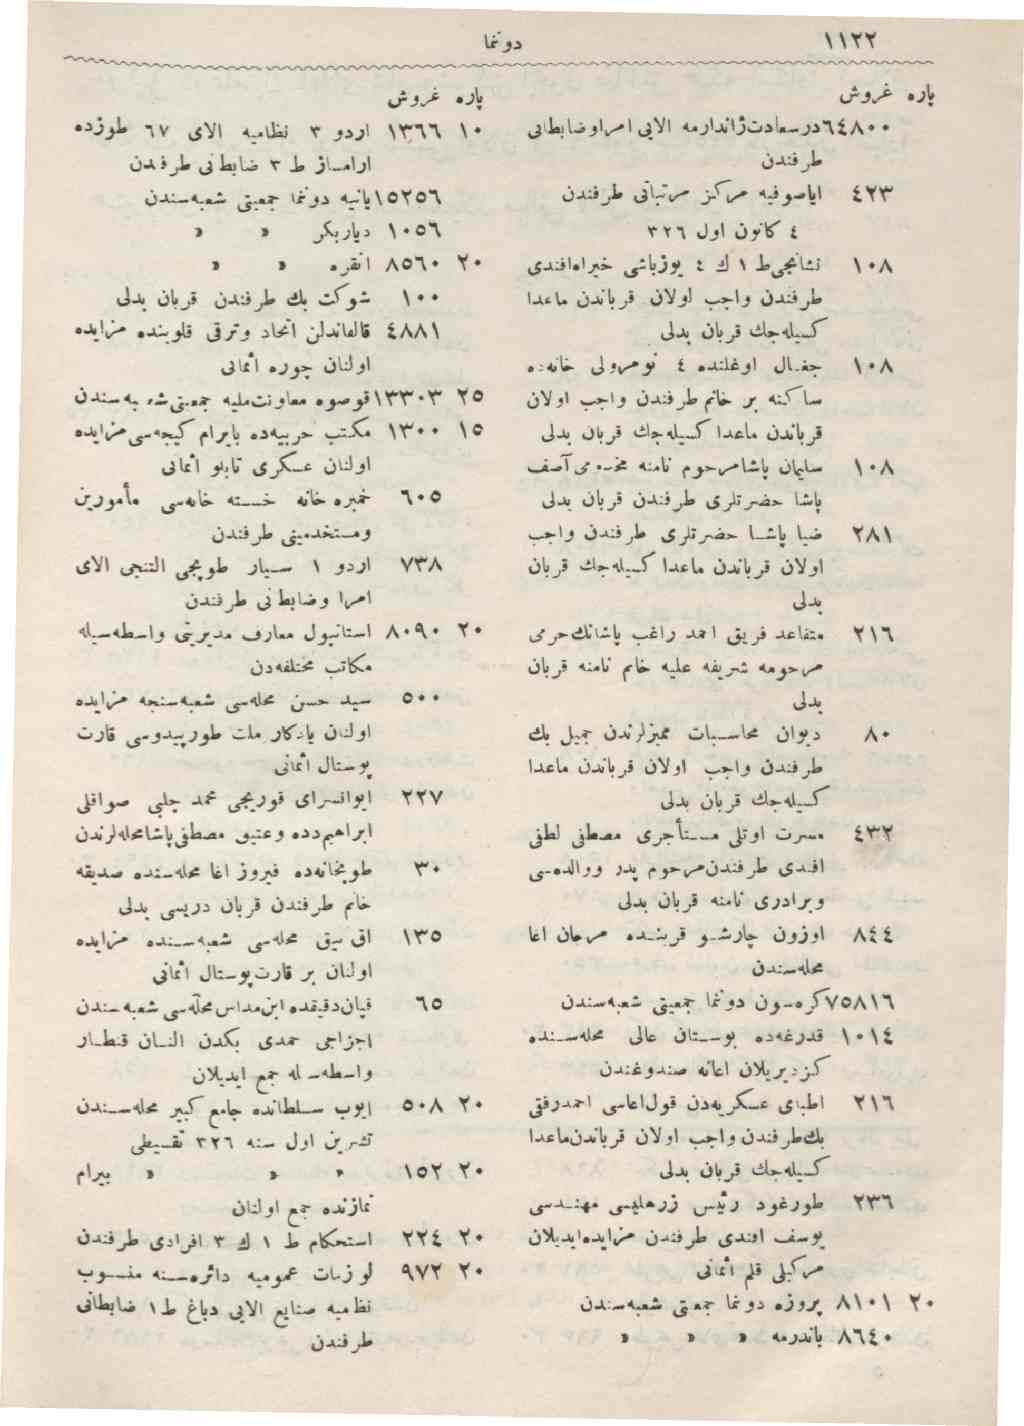 ١١٢٢
دوننما
پاره غروش
٦٤٨٠٠ درسعادت ژاندارمه الايی امراوضابطانی
طرفندن
٤٢٣ اياصوفيه مركز مرتباتی طرفندن
٤ كانون اول ٣٢٦
١٠٨ نشانجی ط ١ ك ٤ يوزباشی خيراه افندی
طرفندن واجب اولان قرباندن ماعدا
كسيله‌جك قربان بدلی
١٠٨ جغال اوغلنده ٤ نومرولی خانه‌ده
ساكنه بر خانم طرفندن واجب اولان
قرباندن ماعدا كسيله‌جك قربان بدلی
١٠٨ سليمان پاشا مرحوم نامنه مخدومی آصف
پاشا حضرتلری طرفندن قربان بدلی
٢٨١ ضيا پاشا حضرتلری طرفندن واجب
اولان قرباندن ماعدا كسيله‌جك قربان
بدلی
٢١٦ متقاعد فريق احمد راغب پاشانك حرمی
مرحومه شريفه عليه خانم نامنه قربان
بدلی
٨٠ ديوان محاسبات مميزلرندن جميل بك
طرفندن واجب اولان قرباندن ماعدا
كسيله‌جك قربان بدلی
٤٣٢ مسرت اوتلی مستأجری مصطفی لطفی
افندی طرفندن مرحوم پدر ووالده‌سی
وبرادری نامنه قربان بدلی
٨٤٤ اوزون چارشو قربنده مرجان اغا
محله‌سندن
٧٥٨١٦ كره‌سون دوننما جمعيتی شعبه‌سندن
١٠١٤ قدرغه‌ده بوستان عالی محله‌سنده
كزديريلان اعانه صندوغندن
٢١٦ اطبای عسكريه‌دن قول اغاسی احمدرفقی
بك طرفندن واجب اولان قرباندن ماعدا
كسيله‌جك قربان بدلی
٢٣٦ طورغود رئيس زرهليسی مهندسی
يوسف افندی طرفندن مزايده ايديلان
مركبلی قلم اثمانی
٢٠ ٨١٠١ پروزه دوننما جمعيتی شعبه‌سندن
٨٦٤٠ باندرمه » » »
پاره غروش
١٠ ١٣٦٦ اردو ٣ نظاميه الای ٦٧ طوزده
ارامساز ط ٣ ضابطانی طرفندن
١٥٢٥٦ يانيه دوننما جمعيتی شعبه‌سندن
١٠٥٦ دياربكر » »
٢٠ ٨٥٦٠ انقره » »
١٠٠ شوكت بك طرفندن قربان بدلی
٤٨٨١ قالقاندلن اتحاد وترقی قلوبنده مزايده
اولنان چوره اثمانی
٢٥ ١٣٣٠٣ قوصوه معاونت مليه جمعيتی شعبه‌سندن
١٥ ١٣٠٠ مكتب حربيه‌ده بايرام كيجه‌سی مزايده
اولنان عسكری تابلو اثمانی
٦٠٥ خمبره خانه خسته خانه‌سی مأمورين
ومستخدمينی طرفندن
٧٣٨ اردو ١ سيار طوپجی التنجی الای
امرا وضابطانی طرفندن
٢٠ ٨٠٩٠ استانبول معارف مديريتی واسطه‌سيله
مكاتب مختلفه‌دن
٥٠٠ سيد حسن محله‌سی شعبه‌سنجه مزايده
اولنان يادكار ملت طورپيدوسی قارت
پوستال اثمانی
٢٢٧ ابوافسرای قوريجی محمد چلبی صواقلی
ابراهيم‌دده وعتيق مصطفی پاشا محله‌لرندن
٣٠ طوپخانه‌ده فيروز اغا محله‌سنده صديقه
خانم طرفندن قربان دريسی بدلی
١٣٥ اق بيق محله‌سی شعبه‌سنده مزايده
اولنان بر قارت پوستال اثمانی
٦٥ قپان دقيقده ابن مداس محله‌سی شعبه‌سندن
اجزاجی حمدی بكدن النان قنطار
واسطه‌سله جمع ايديلان
٢٠ ٥٠٨ ايوب سلطانده جامع كبير محله‌سندن
تشرين اول سنه ٣٢٦ تقسيطی
٢٠ ١٥٢ » » » بيرام
نمازنده جمع اولنان
٢٠ ٢٢٤ استحكام ط ١ ك ٣ افرادی طرفندن
٢٠ ٩٧٢ لوازمات عموميه دائره‌سنه منسوب
نظاميه صنايع الايی دباغ ط ١ ضابطانی
طرفندن